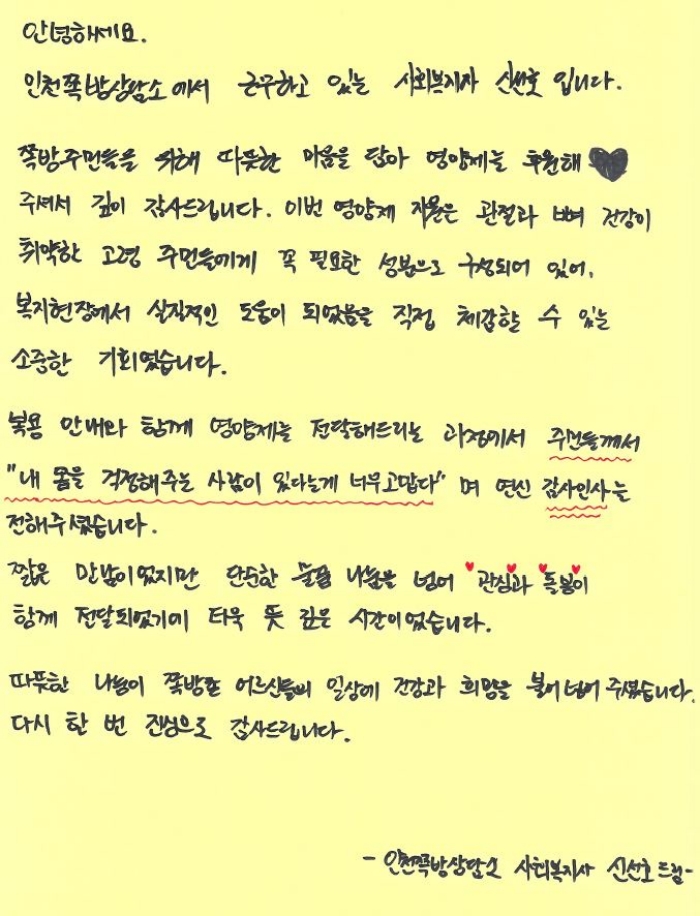 안녕하세요.
인천쪽방상담소에서 근무하고 있는 사회복지사 신선호 입니다.
쪽방주민들을 위해 따뜻한 마음을 담아 영양제를 후원해
주셔서 깊이 감사드립니다. 이번 영양제 지원은 관절과 뼈 건강이
취약한 고령 주민들에게 꼭 필요한 성분으로 구성되어 있어,
복지현장에서 실질적인 도움이 되었음을 직접 체감할 수 있는
소중한 기회였습니다.
복용 안내와 함께 영양제를 전달해드리는 과정에서 주민들께서
"내 몸을 걱정해주는 사람이 있다는게 너무고맙다" 며 연신 감사인사를
전해주셨습니다.
짧은 만남이었지만 단순한 물품 나눔을 넘어 관심과 돌봄이
함께 전달되었기에 더욱 뜻 깊은 시간이었습니다.
따뜻한 나눔이 쪽방촌 어르신들의 일상에 건강과 희망을 불어넣어 주셨습니다.
다시 한 번 진심으로 감사드립니다.
- 인천쪽방상담소 사회복지사 신선호 드림-